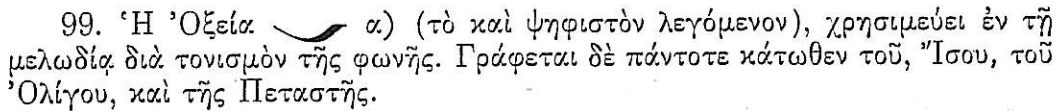 99. Ἡ Ὀξεῖα α) (τὸ καὶ ψηφιστὸν λεγόμενον), χρησιμεύει ἐν τῇ
μελωδίᾳ διὰ τονισμὸν τῆς φωνῆς. Γράφεται δὲ πάντοτε κάτωθεν τοῦ, Ἴσου, τοῦ
Ὀλίγου, καὶ τῆς Πεταστῆς.